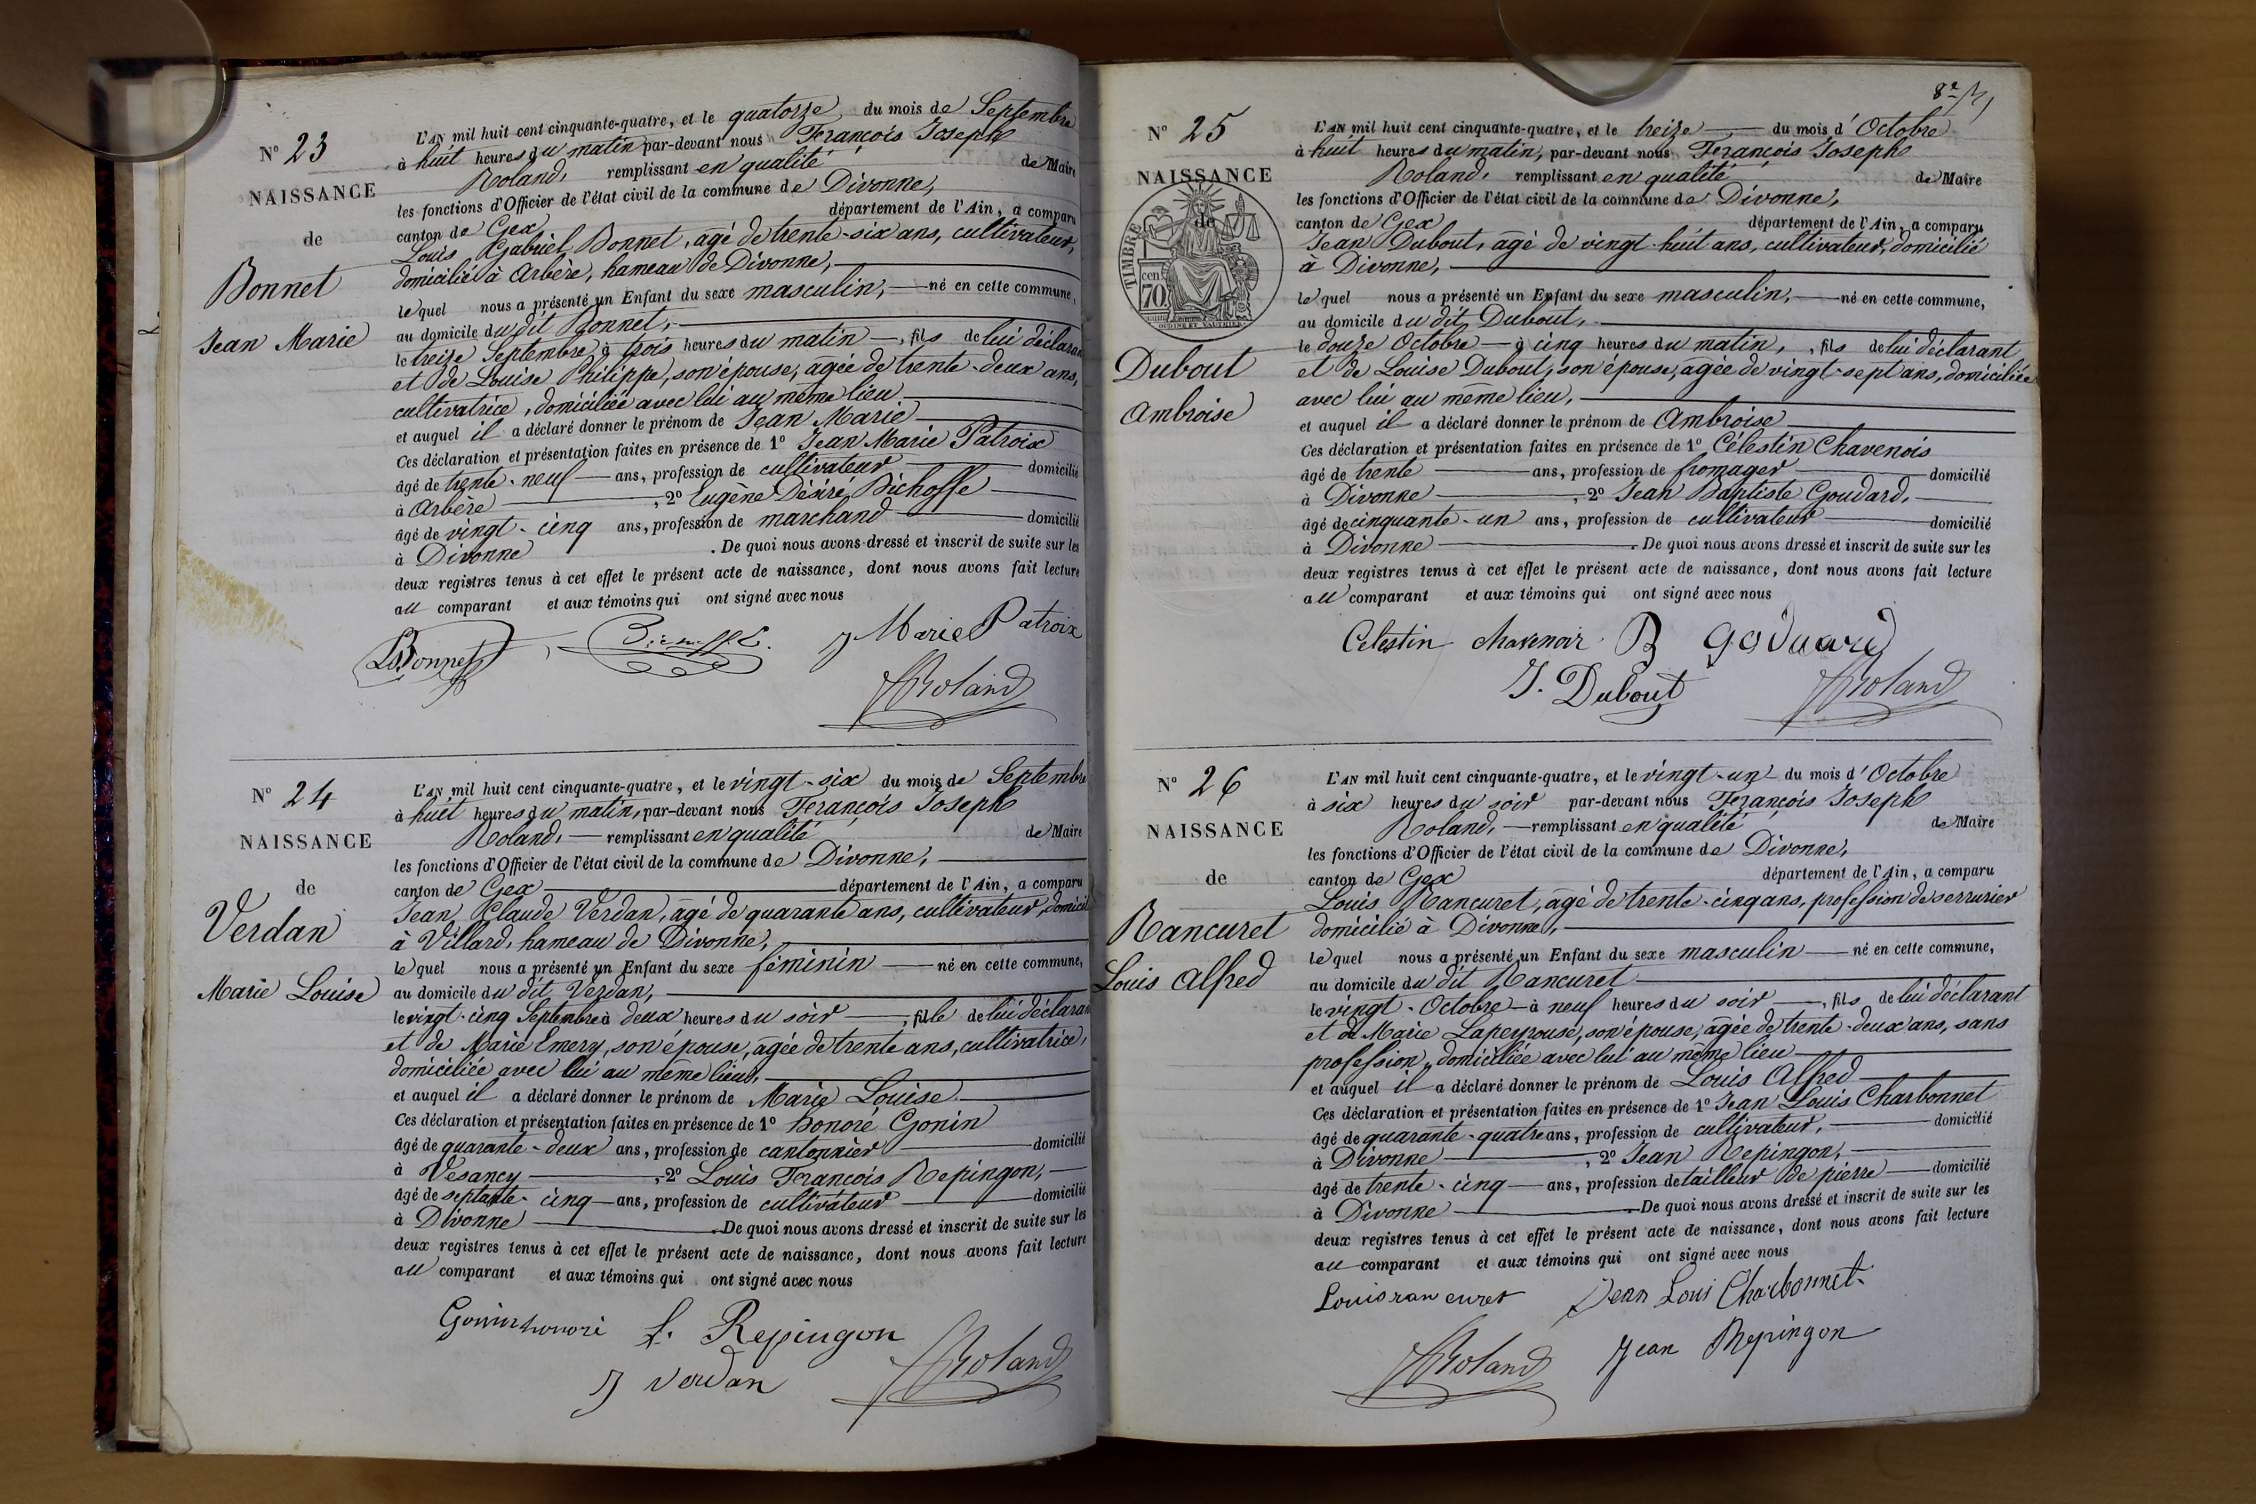 N° 23
NAISSANCE
de
Bonnet
Jean Marie
L'AN mil huit cent cinquante-quatre, et le quatorze du mois de Septembre
à huit heures du matin par-devant nous François Joseph
Roland, remplissant en qualité de Maire
les fonctions d'Officier de l'état civil de la commune de Divonne,
canton de Gex département de l'Ain, a comparu
Louis Gabriel Bonnet, agé de trente-six ans, cultivateur,
domicilié à Arbère, hameau de Divonne,
lequel nous a présenté un Enfant du sexe masculin, né en cette commune,
au domicile du dit Bonnet,
le treize Septembre à trois heures du matin, fils de lui déclarant
et de Louise Philippe, son épouse, agée de trente-deux ans,
cultivatrice, domiciliée avec lui au même lieu
et auquel il a déclaré donner le prénom de Jean Marie
Ces déclaration et présentation faites en présence de 1° Jean Marie Patroix
âgé de trente-neuf ans, profession de cultivateur domicilié
à Arbère, 2° Eugène Désiré Bichoffe
âgé de vingt-cinq ans, profession de marchand domicilié
à Divonne. De quoi nous avons dressé et inscrit de suite sur les
deux registres tenus à cet effet le présent acte de naissance, dont nous avons fait lecture
au comparant et aux témoins qui ont signé avec nous
J Marie Patroix
LBonnet
Roland
N° 24
NAISSANCE
de
Verdan
Marie Louise
L'AN mil huit cent cinquante-quatre, et le vingt-six du mois de Septembre
à huit heures du matin, par-devant nous François Joseph
Roland, remplissant en qualité de Maire
les fonctions d'Officier de l'état civil de la commune de Divonne,
canton de Gex département de l'Ain, a comparu
Jean Claude Verdan, agé de quarante ans, cultivateur, domicil
à Villard, hameau de Divonne,
lequel nous a présenté un Enfant du sexe féminin né en cette commune,
au domicile du dit Verdan,
le vingt-cinq Septembre à deux heures du soir, fille de lui déclarant
et de Marie Emery, son épouse, agée de trente ans, cultivatrice,
domiciliée avec lui au même lieu,
et auquel il a déclaré donner le prénom de Marie Louise
Ces déclaration et présentation faites en présence de 1° Honoré Gonin
âgé de quarante-deux ans, profession de cantonnier domicilié
à Vesancy, 2° Louis François Repingon,
âgé de septante-cinq ans, profession de cultivateur domicilié
à Divonne. De quoi nous avons dressé et inscrit de suite sur les
deux registres tenus à cet effet le présent acte de naissance, dont nous avons fait lecture
au comparant et aux témoins qui ont signé avec nous
Gonin honoré L. Repingon
J verdan Roland
8e
N° 25
NAISSANCE
de
TIMBRE
cen
70
Dubout
Ambroise
L'AN mil huit cent cinquante-quatre, et le treize du mois d'Octobre
à huit heures du matin, par-devant nous François Joseph
Roland, remplissant en qualité de Maire
les fonctions d'Officier de l'état civil de la commune de Divonne,
canton de Gex département de l'Ain, a comparu
Jean Dubout, agé de vingt-huit ans, cultivateur, domicilié
à Divonne,
lequel nous a présenté un Enfant du sexe masculin, né en cette commune,
au domicile du dit Dubout,
le douze Octobre à cinq heures du matin, fils de lui déclarant
et de Louise Dubout, son épouse, agée de vingt-sept ans, domiciliée
avec lui au même lieu,
et auquel il a déclaré donner le prénom de Ambroise
Ces déclaration et présentation faites en présence de 1° Célestin Chavenois
âgé de trente ans, profession de fromager domicilié
à Divonne, 2° Jean Baptiste Goudard,
âgé de cinquante-un ans, profession de cultivateur domicilié
à Divonne. De quoi nous avons dressé et inscrit de suite sur les
deux registres tenus à cet effet le présent acte de naissance, dont nous avons fait lecture
au comparant et aux témoins qui ont signé avec nous
Celestin chavenoir B goduard
J. Dubout Roland
N° 26
NAISSANCE
de
Rancuret
Louis Alfred
L'AN mil huit cent cinquante-quatre, et le vingt-un du mois d'Octobre
à six heures du soir par-devant nous François Joseph
Roland, remplissant en qualité de Maire
les fonctions d'Officier de l'état civil de la commune de Divonne,
canton de Gex département de l'Ain, a comparu
Louis Rancuret, agé de trente-cinq ans, profession de serrurier
domicilié à Divonne,
lequel nous a présenté un Enfant du sexe masculin né en cette commune,
au domicile du dit Rancuret
le vingt-Octobre à neuf heures du soir, fils de lui déclarant
et de Marie Lapeyrouse, son épouse, agée de trente-deux ans, sans
profession, domiciliée avec lui au même lieu
et auquel il a déclaré donner le prénom de Louis Alfred
Ces déclaration et présentation faites en présence de 1° Jean Louis Charbonnet
âgé de quarante-quatre ans, profession de cultivateur, domicilié
à Divonne, 2° Jean Repingon,
âgé de trente-cinq ans, profession de tailleur de pierre domicilié
à Divonne. De quoi nous avons dressé et inscrit de suite sur les
deux registres tenus à cet effet le présent acte de naissance, dont nous avons fait lecture
au comparant et aux témoins qui ont signé avec nous
Louis ran curet Jean Louis Charbonnet
Roland Jean Repingon